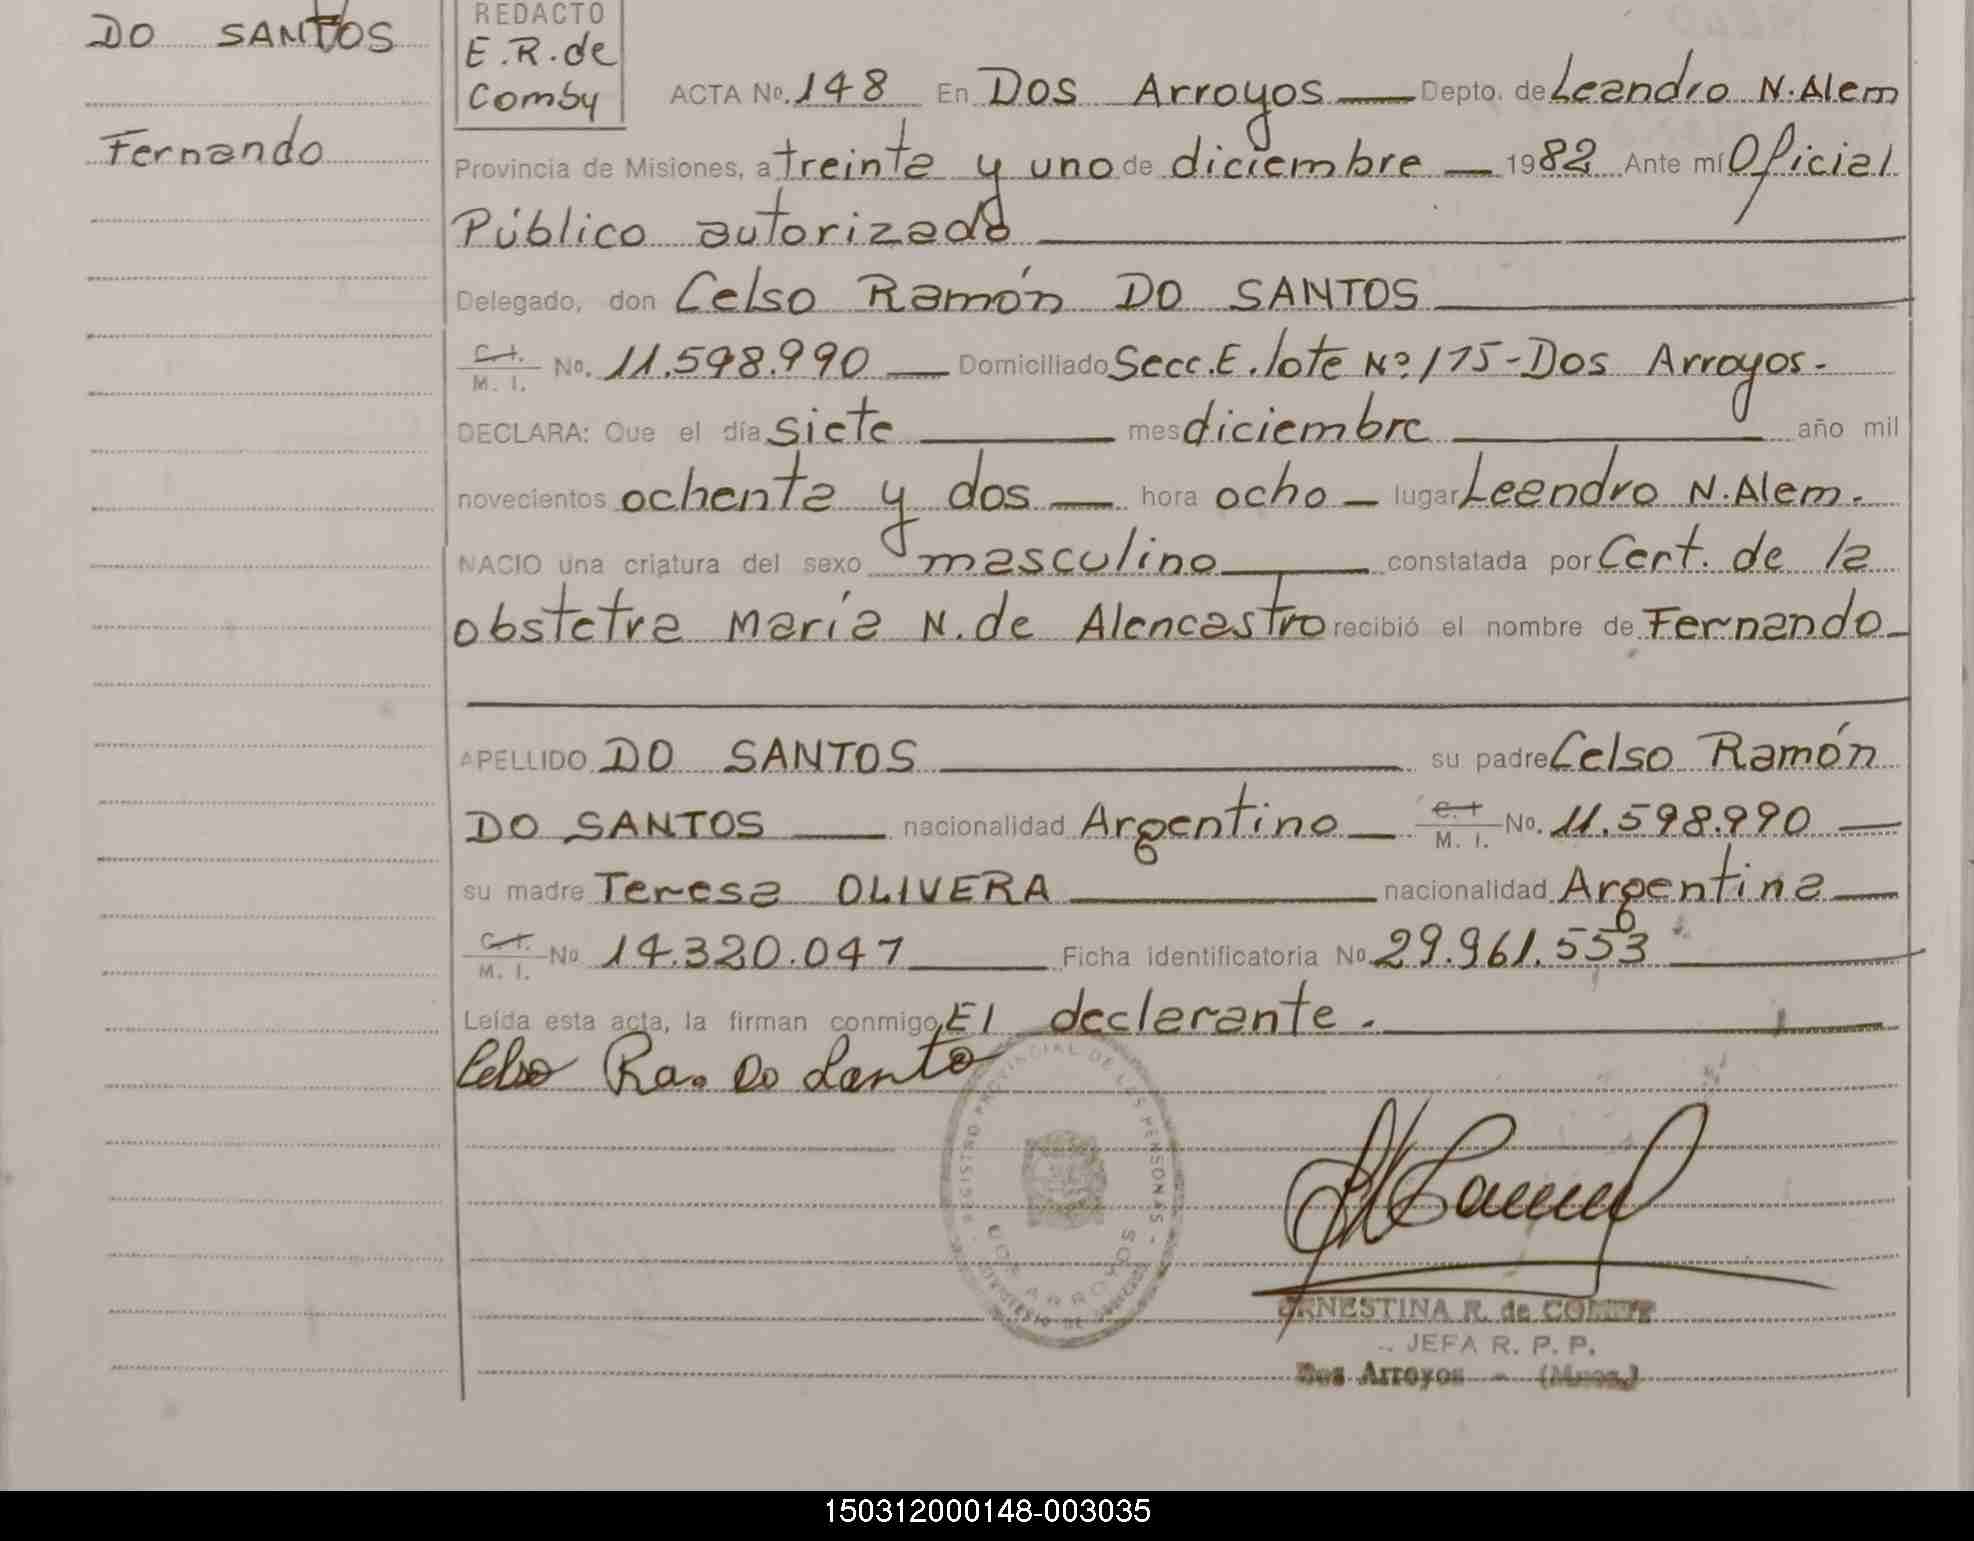 DO SANTOS
Fernando
REDACTO
E.R. de
Comby
ACTA No. 148 En Dos Arroyos — Depto. de Leandro N. Alem
Provincia de Misiones, a treinta y uno de diciembre — 1982 Ante mí Oficial
Público autorizado
Delegado, don Celso Ramón DO SANTOS
C.I. M. I. No. 11.598.990 — Domiciliado Secc. E. lote Nº 175 - Dos Arroyos.-
DECLARA: Que el día siete mes diciembre año mil
novecientos ochenta y dos — hora ocho — lugar Leandro N. Alem.
NACIO una criatura del sexo masculino constatada por Cert. de la
obstetra María N. de Alencastro recibió el nombre de Fernando
APELLIDO DO SANTOS su padre Celso Ramón
DO SANTOS — nacionalidad Argentino — C.I. M. I. No. 11.598.990 —
su madre Teresa OLIVERA nacionalidad Argentina —
C.I. M. I. No 14.320.047 Ficha identificatoria No 29.961.553
Leída esta acta, la firman conmigo, El declarante.
Celso Ra. Do Santo
REGISTRO PROVINCIAL DE LAS PERSONAS
DOS ARROYOS
ERNESTINA R. de COMBY
JEFA R. P. P.
Dos Arroyos - (Mnes.)
150312000148-003035